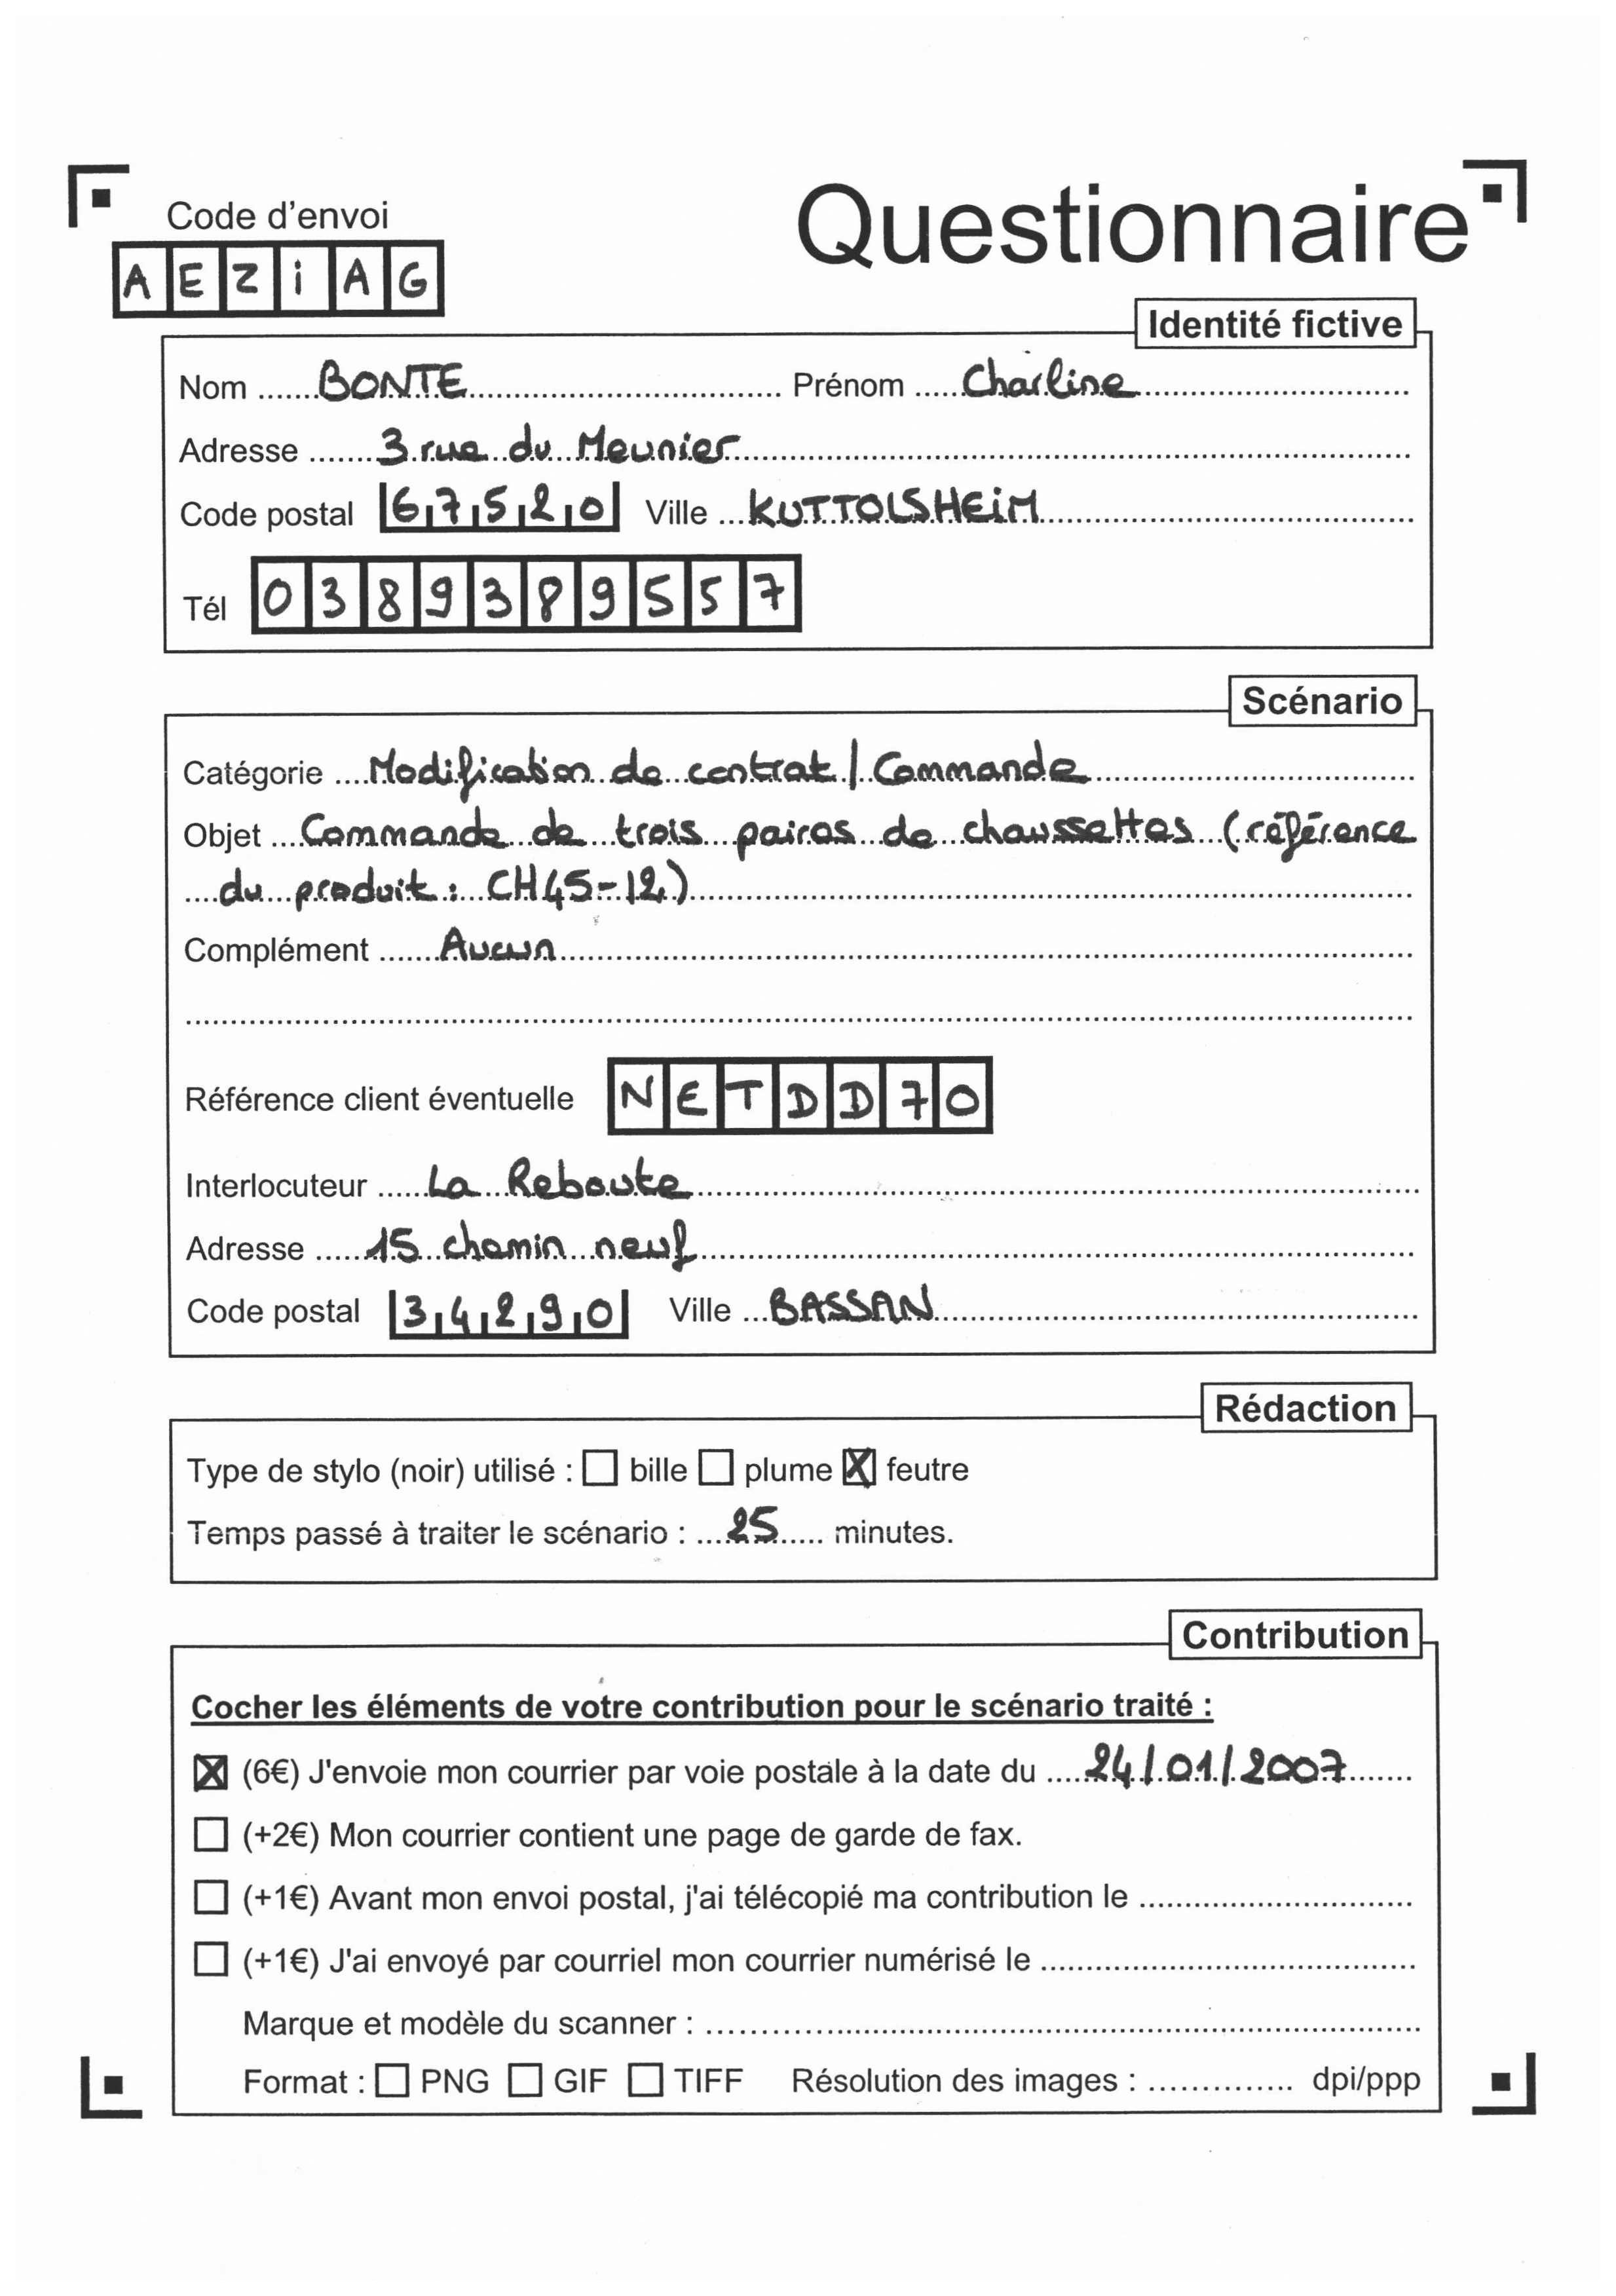 Questionnaire
Code d'envoi
AEZiAG
Identité fictive
Nom ...... BONTE ...... Prénom ...... Charline
Adresse ...... 3 rue du Meunier
Code postal 67520 Ville ... KUTTOLSHEiM
Tél 0389389557
Scénario
Catégorie .... Modification de contrat / Commande
Objet .... Commande de trois paires de chaussettes (référence
du produit : CH45-12)
Complément ...... Aucun
Référence client éventuelle NETDD70
Interlocuteur ..... La Reboute
Adresse ..... 15 chemin neuf
Code postal 34290 Ville ... BASSAN
Rédaction
Type de stylo (noir) utilisé : ☐ bille ☐ plume ☒ feutre
Temps passé à traiter le scénario : ... 25 ..... minutes.
Contribution
Cocher les éléments de votre contribution pour le scénario traité :
☒ (6€) J'envoie mon courrier par voie postale à la date du .... 24/01/2007
☐ (+2€) Mon courrier contient une page de garde de fax.
☐ (+1€) Avant mon envoi postal, j'ai télécopié ma contribution le ..........
☐ (+1€) J'ai envoyé par courriel mon courrier numérisé le ..........
Marque et modèle du scanner : ..........
Format : ☐ PNG ☐ GIF ☐ TIFF Résolution des images : .............. dpi/ppp